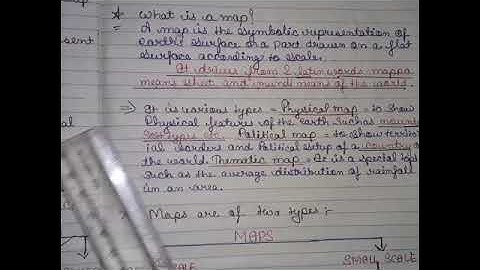 sent
al
* What is a map?
= A map is the symbolic representation of
earth's surface or a part drawn on a flat
surface according to scale.
It draws from 2 latin words mappa
means sheet and mundi means of the world.
⇒ It is various types = Physical map = to show
Physical features of the earth such as
soil types etc. Political map = to show territo
ial borders and Political setup of a country or
the world. Thematic map = It is a special
such as the average distribution of rainfall
in an area.
Maps are of two types :-
MAPS
SCALE SMALL SCALE